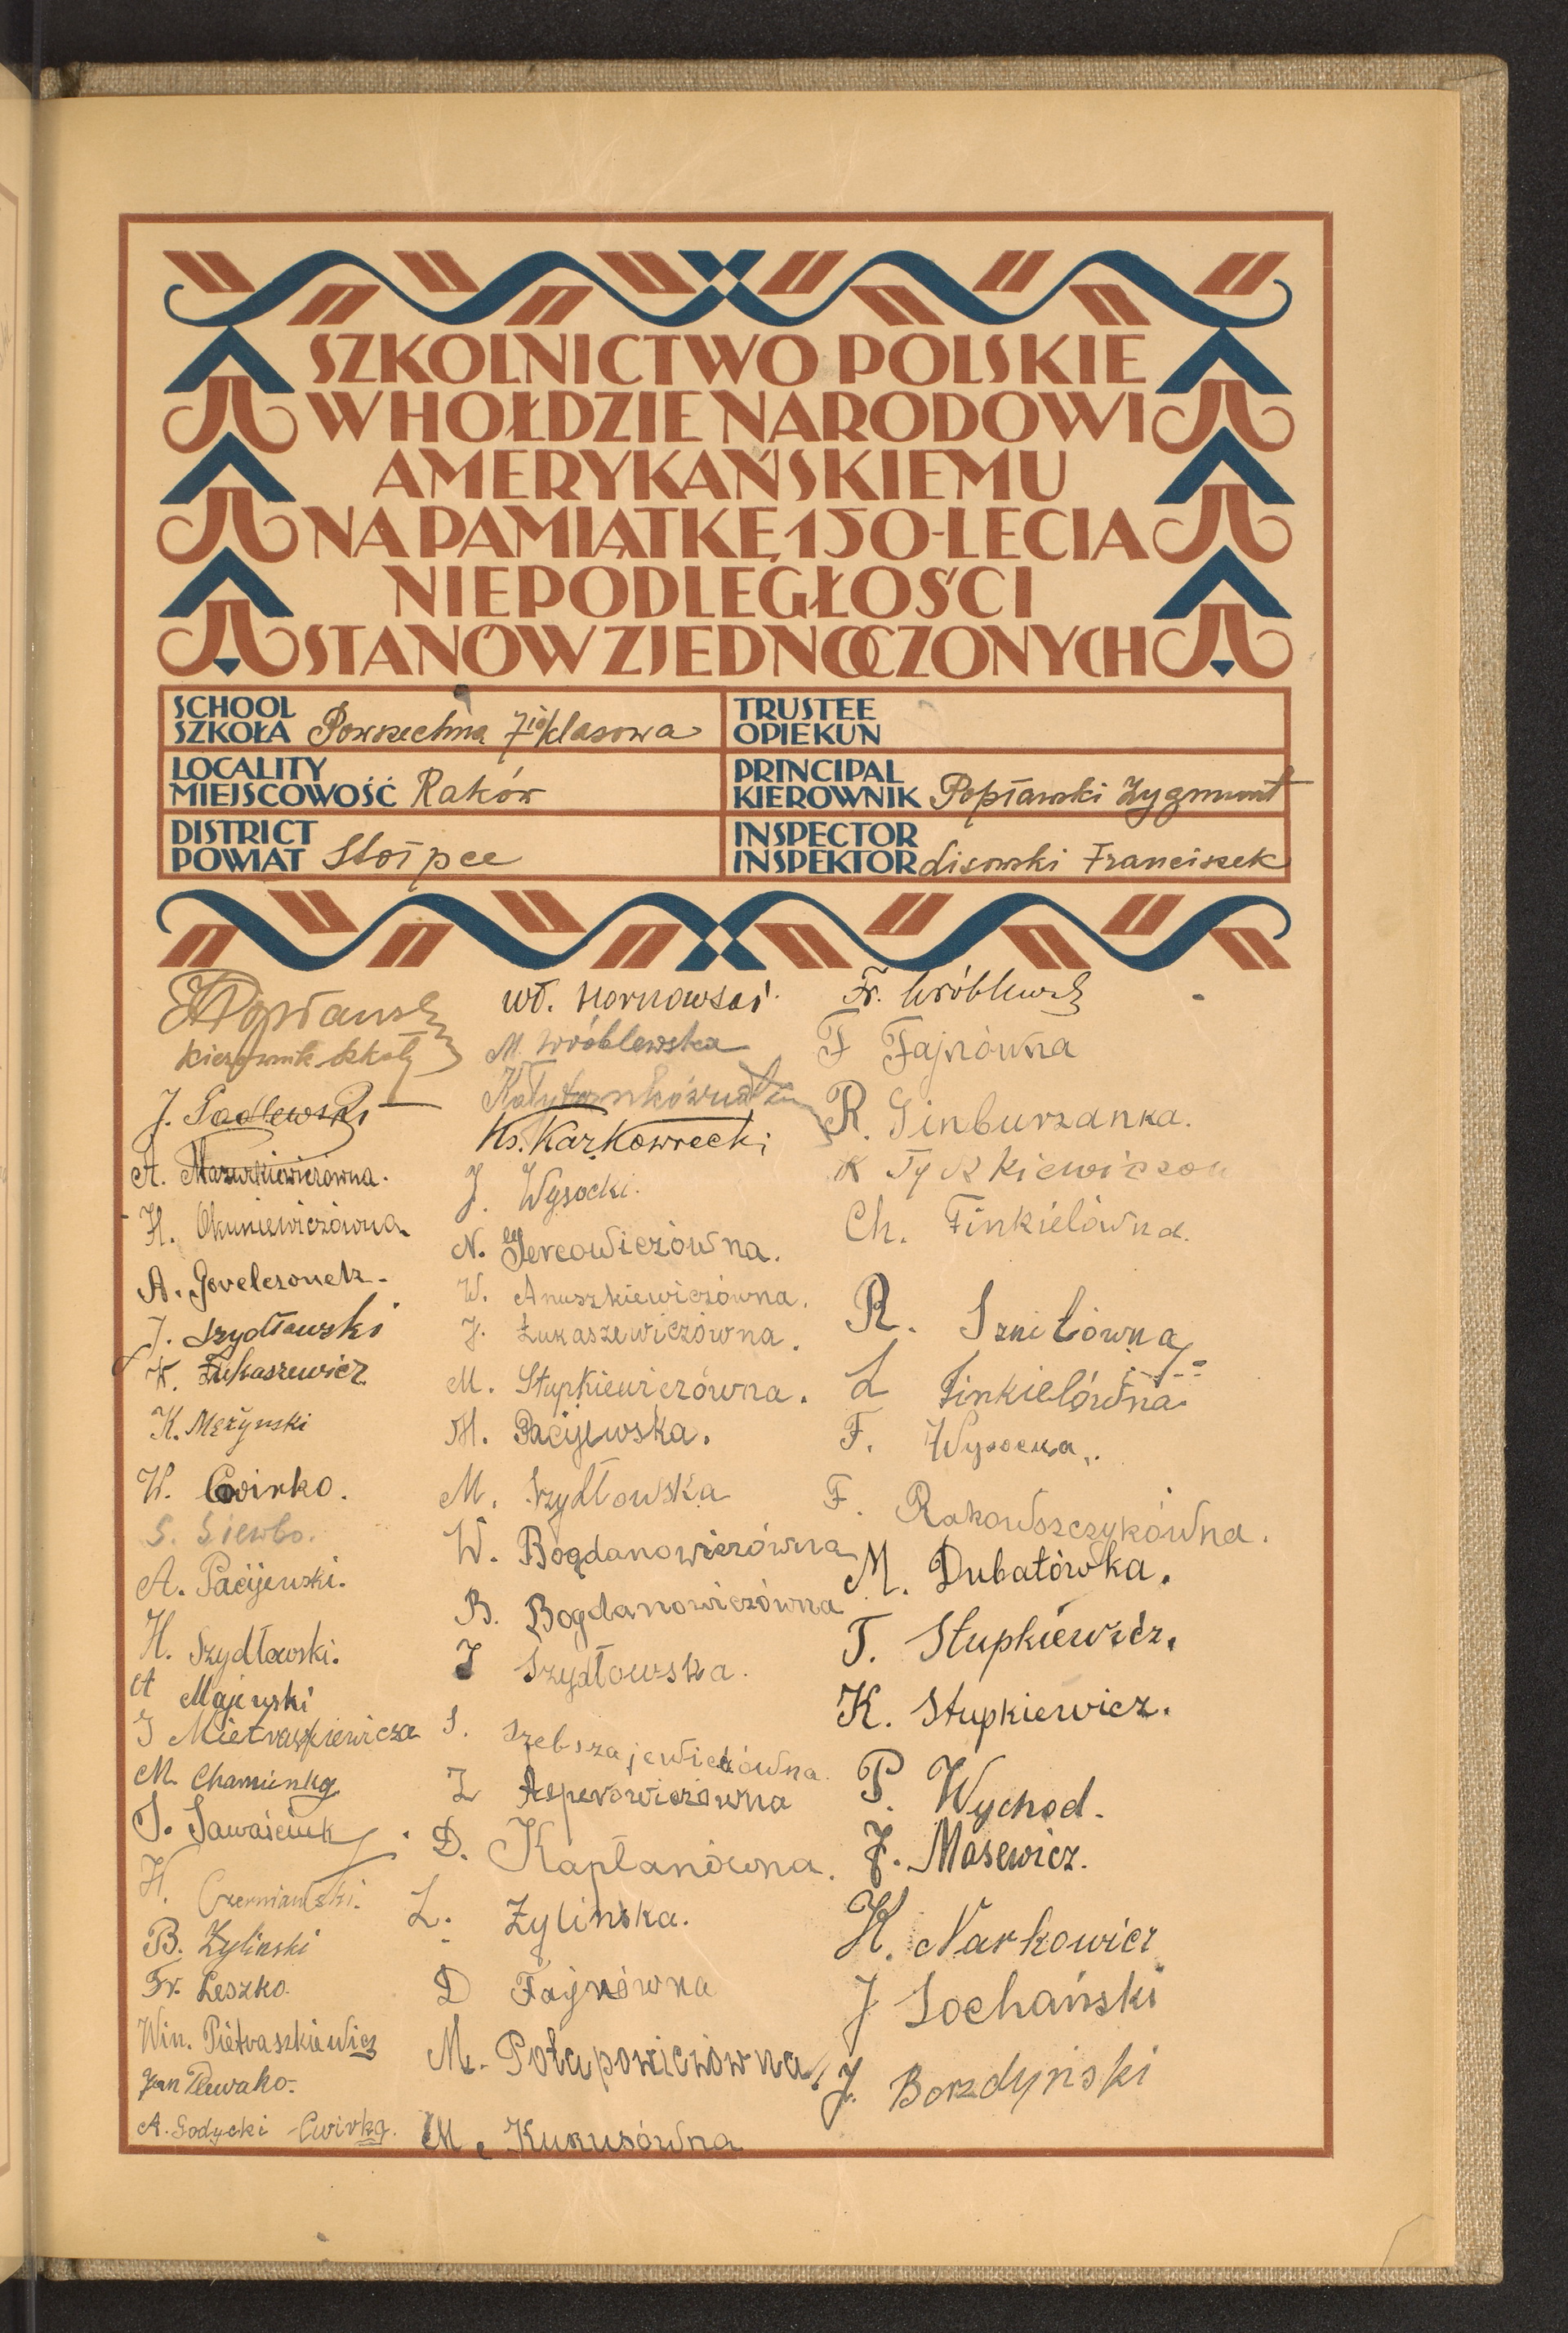 SZKOLNICTWO POLSKIE
W HOŁDZIE NARODOWI
AMERYKAŃSKIEMU
NA PAMIĄTKĘ 150-LECIA
NIEPODLEGŁOŚCI
STANÓW ZJEDNOCZONYCH
SCHOOL
SZKOŁA Powszechna 7io klasowa
TRUSTEE
OPIEKUN
LOCALITY
MIEJSCOWOŚĆ Raków
PRINCIPAL
KIEROWNIK Popławski Zygmunt
DISTRICT
POWIAT Stołpce
INSPECTOR
INSPEKTOR Lisowski Franciszek
Popławski
kierownik szkoły
J. Sadlewski
A. Mazurkiewiczówna.
H. Okuniewiczówna
A.
J. Szydłowski
W. Łukaszewicz
K. Mężyński
W. Ćwirko.
S. Siewbo.
A. Pacijewski.
H. Szydłowski.
A Majewski
J Mietraszkiewicza
M. Chamienko
S. Sawaściuk
H. Czerniawski.
B. Żyliński
Fr. Leszko.
Win. Pietraszkiewicz
Jan Plewako.
A. Godycki-Ćwirko.
Wł. Hornowski
M. Wróblewska
Ks. Karkowrecki
J. Wysocki.
N. Jercowiczówna.
W. Anuszkiewiczówna.
J. Łukaszewiczówna.
M. Stupkiewiczówna.
H. Pacijewska.
M. Szydłowska
W. Bogdanowiczówna
B. Bogdanowiczówna
J Szydłowska.
S. Szebszajewiczówna.
Z Asperowiczówna
D. Kapłanówna.
L. Żylinska.
D Fajnówna
M. Potapowiczówna
M. Kukusówna
Fr. Wróblewski
F Fajnówna
R. Ginburzanka.
K Tyszkiewiczow
Ch. Finkielówna.
R. Sznitówna
L Finkielówna.
F. Wysocka.
F. Rakowszczykówna.
M. Dubatówka.
T. Stupkiewicz.
K. Stupkiewicz.
P. Wychod.
J. Masewicz.
H. Narkowicz
J Sochański
J. Borzdyński